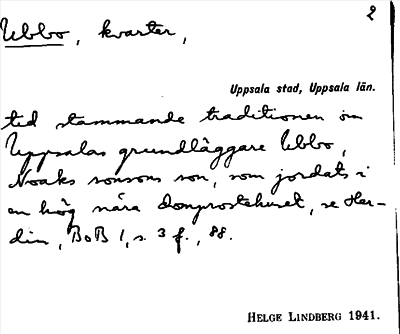 2
Ubbo, kvarter,
Uppsala stad, Uppsala län.
tid stammande traditionen om
Uppsalas grundläggare Ubbo,
Noaks sonsons son, som jordats i
en hög nära domprostehuset, se Har-
din, BoB 1, s. 3 f., 88.
HELGE LINDBERG 1941.